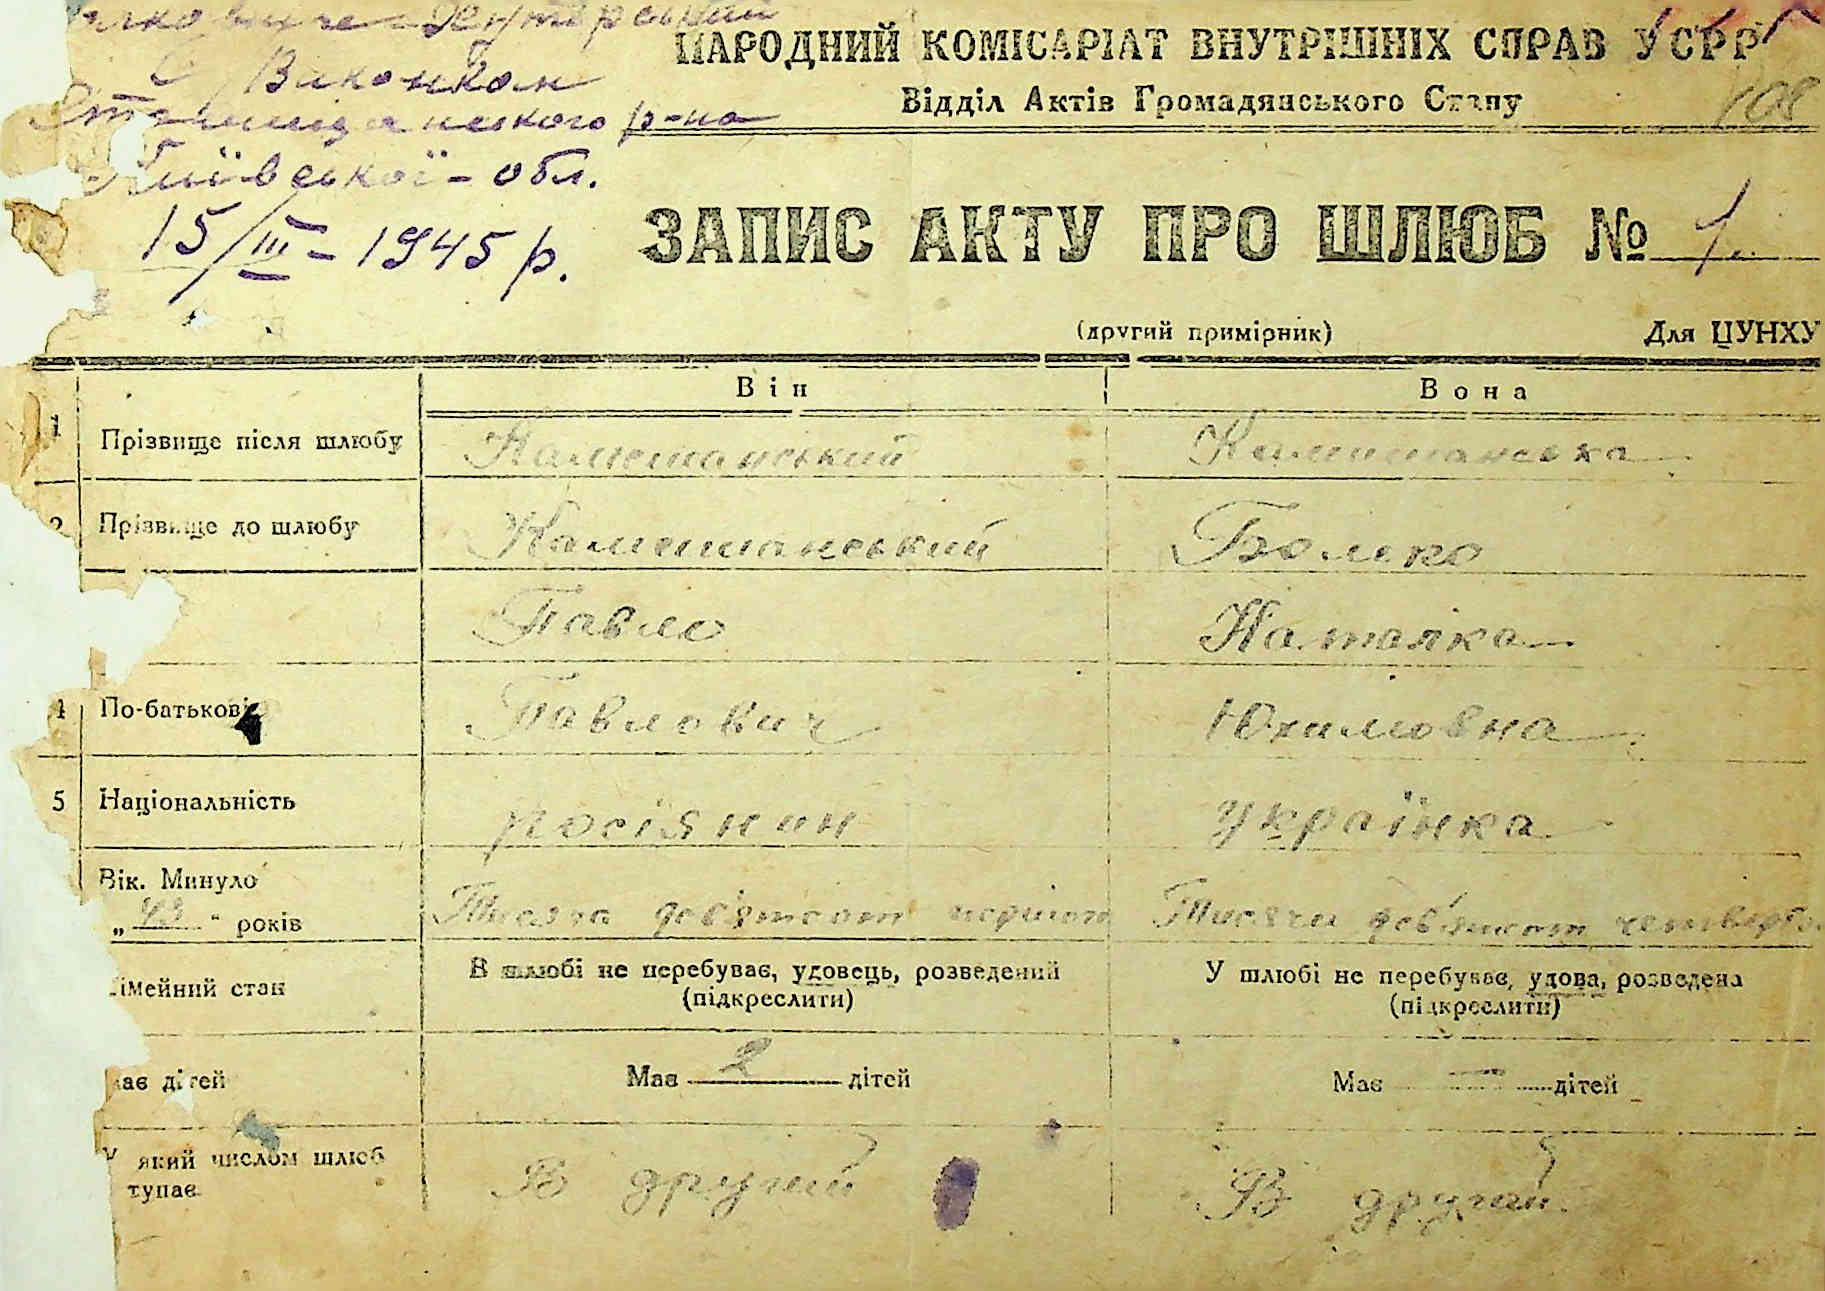 С Виконком
р-на
Київської - обл.
15/III - 1945 р.
НАРОДНИЙ КОМІСАРІАТ ВНУТРІШНІХ СПРАВ УСРР
108
Відділ Актів Громадянського Стану
ЗАПИС АКТУ ПРО ШЛЮБ № 1.
(другий примірник) Для ЦУНХУ
Він Вона
1 Прізвище після шлюбу Камешанський Камешанська
2 Прізвище до шлюбу Камешанський
Павло Наталка
4 По-батькові Павлович Юхимовна
5 Національність росіянин українка
Вік. Минуло
„ 43 " років Тисяча дев'ятсот першого Тисячи дев'ятсот
імейний стан В шлюбі не перебуває, удовець, розведений У шлюбі не перебуває, удова, розведена
(підкреслити) (підкреслити)
ає дітей Має 2 дітей Має — дітей
У який числом шлюб
тупає В другий В другий